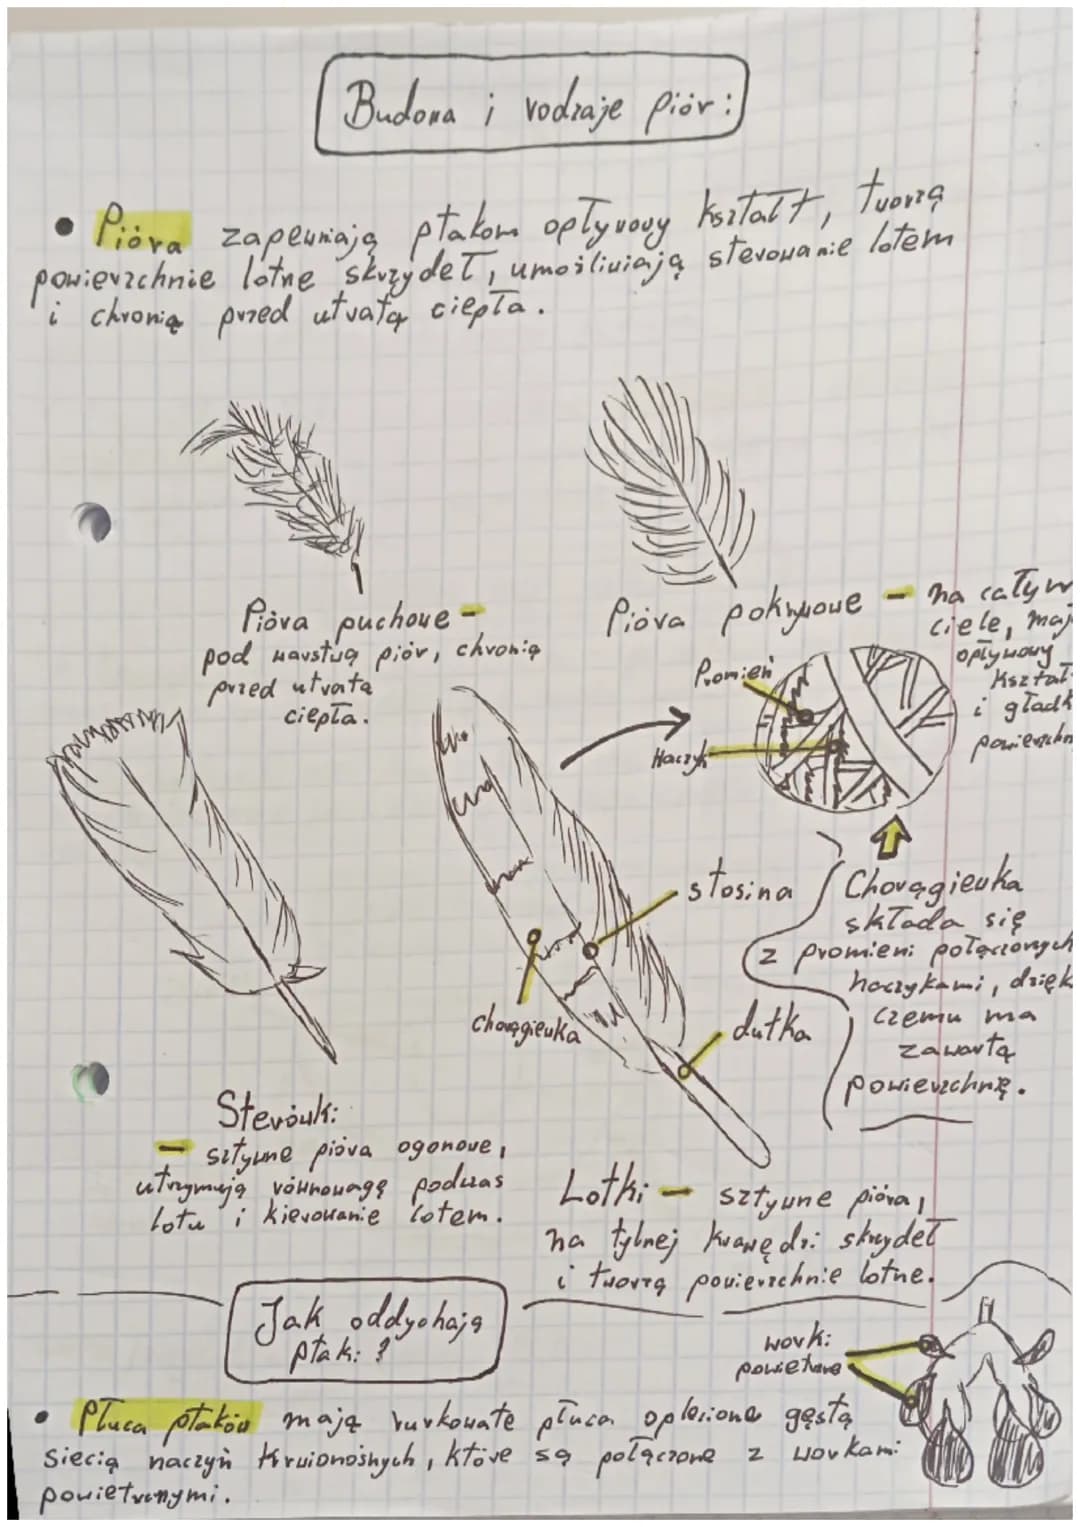 Budowa i rodzaje piór:
• Pióra zapewniają ptakom opływowy kształt, tworzą
powierzchnie lotne skrzydeł, umożliwiają sterowanie lotem
i chronią przed utratą ciepła.
Pióra puchowe -
pod warstwą piór, chronią
przed utratą
ciepła.
Pióra pokrywowe - na całym
ciele, mają
opływowy
kształ
i gładk
powierzchn
Promień
Haczyk
stosina
chorągiewka
dutka
Chorągiewka
składa się
z promieni połączonych
haczykami, dzięk
czemu ma
zawartą
powierzchnię.
Sterówki:
- sztywne pióra ogonowe,
utrzymują równowagę podczas
lotu i kierowanie lotem.
Lotki - sztywne pióra,
na tylnej krawędzi skrzydeł
i tworzą powierzchnie lotne.
Jak oddychają
ptaki?
worki
powietrzne
• Płuca ptaków mają rurkowate płuca oplecione gęstą
siecią naczyń krwionośnych, które są połączone z workami
powietrznymi.